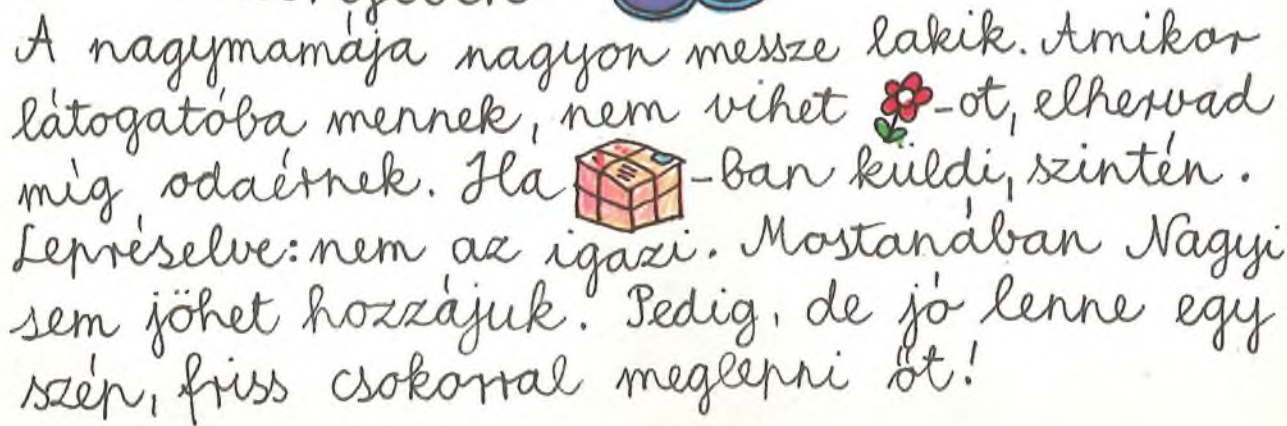 A nagymamája nagyon messze lakik. Amikor
látogatóba mennek, nem vihet -ot, elhervad
míg odaérnek. Ha -ban küldi, szintén.
Lepréselve: nem az igazi. Mostanában Nagyi
sem jöhet hozzájuk. Pedig, de jó lenne egy
szép, friss csokorral meglepni őt!